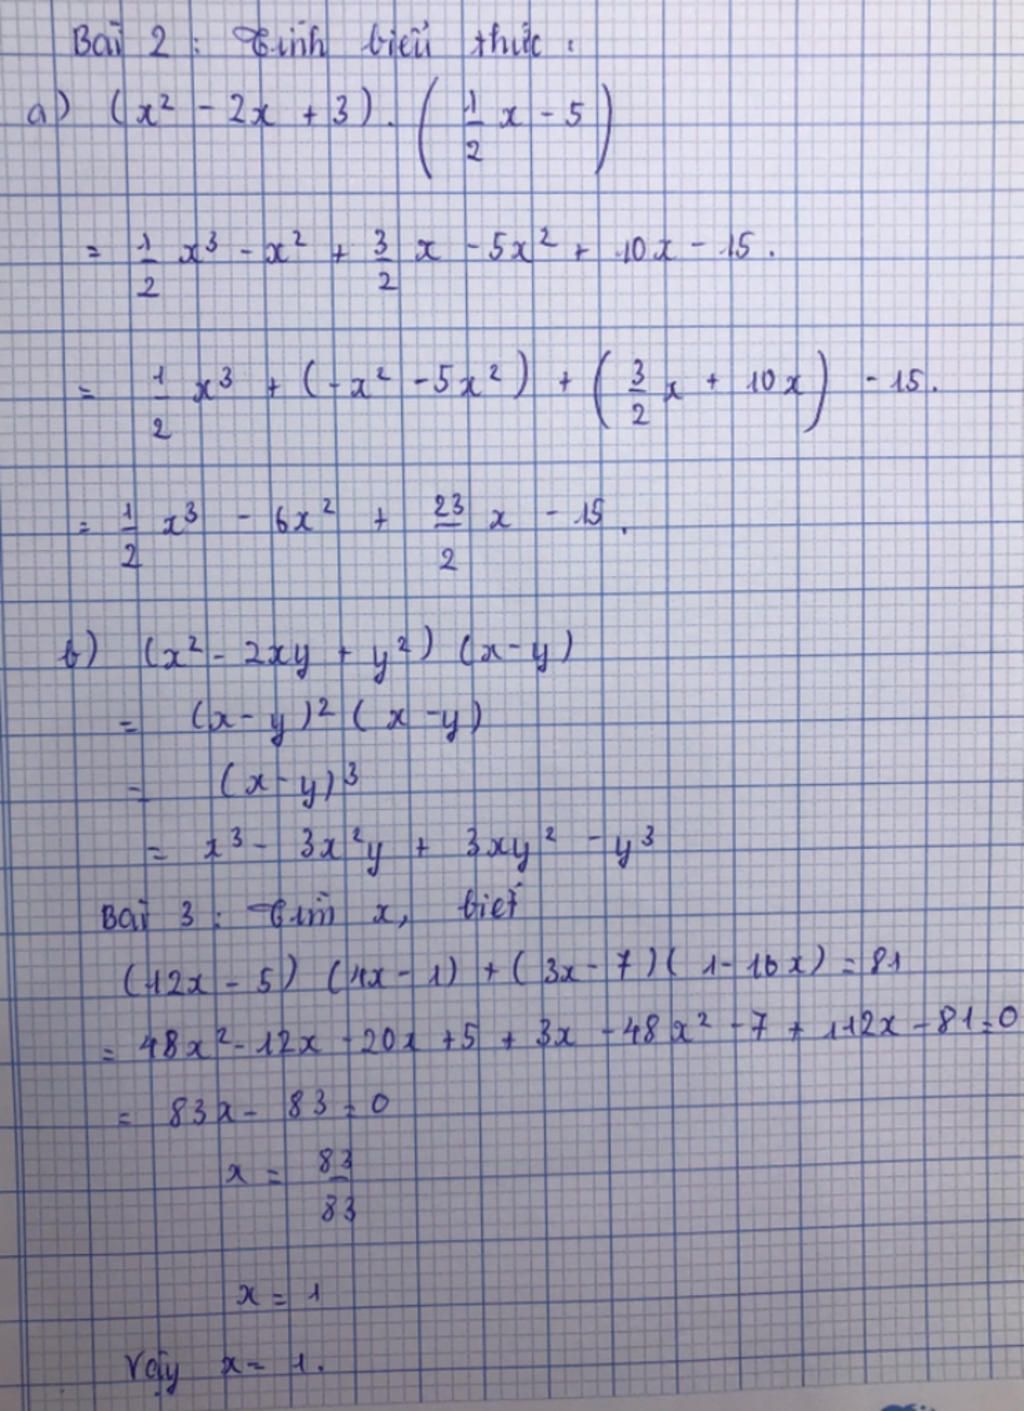 Bài 2 : Tính biểu thức :
a) (x² - 2x + 3) . ( 1/2 x - 5 )
= 1/2 x³ - x² + 3/2 x - 5x² + 10x - 15 .
= 1/2 x³ + (-x² - 5x²) + ( 3/2 x + 10x ) - 15 .
= 1/2 x³ - 6x² + 23/2 x - 15 .
b) (x² - 2xy + y²) (x - y)
= (x - y)² ( x - y)
= (x - y)³
= x³ - 3x²y + 3xy² - y³
Bài 3 : Tìm x, biết
(12x - 5) (4x - 1) + ( 3x - 7 ) ( 1 - 16x ) = 81
= 48x² - 12x - 20x + 5 + 3x - 48x² - 7 + 112x - 81 = 0
= 83x - 83 = 0
x = 83/83
x = 1
Vậy x = 1 .